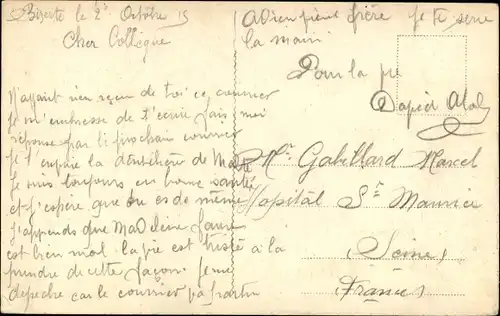 Bizerte le 25 Octobre 15
Cher Collègue
N'ayant rien reçu de toi ce courrier
je m'empresse de t'ecrire fais moi
réponse par li prochain courrier
je t'envoie la dernière de
Je suis toujours en bonne santé
et j'espère que tu es de même
J'apprends que Madeleine
est bien mal. la vie est triste a la
prendre de cette façon. Je me
depeche car le courrier va partir
Adieu frère je te serre
la main
Pour la vie
Mr. Gabillard Marcel
Hopital St Maurice
(Seine)
(France)